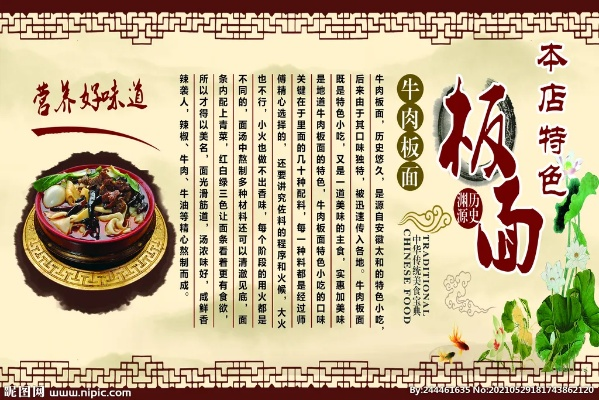 本店特色
板面
历史
渊源
牛肉板面
TRADITIONAL
CHINESE FOOD
中华传统美食宝典
牛肉板面，历史悠久，是源自安徽太和的特色小吃，
后来由于其口味独特，被迅速传入各地。牛肉板面
既是特色小吃，又是一道美味的主食，实惠加美味
是地道牛肉板面的特色，牛肉板面特色小吃的口味
关键在于里面的几十种配料，每一种料都是经过师
傅精心选择的，还要讲究佐料的程序和火候，大火
也不行，小火也做不出香味，每个阶段的用火都是
不同的，面汤中熬制多种材料还可以清澈见底，面
条内配上青菜，红白绿三色让面条看着更有食欲，
所以才得以美名，面光滑筋道，汤浓味好，咸鲜香
辣袭人，辣椒、牛肉、牛油等精心熬制而成。
营养好味道
昵图网 www.nipic.com
By:244461635 No:20210529181743862120